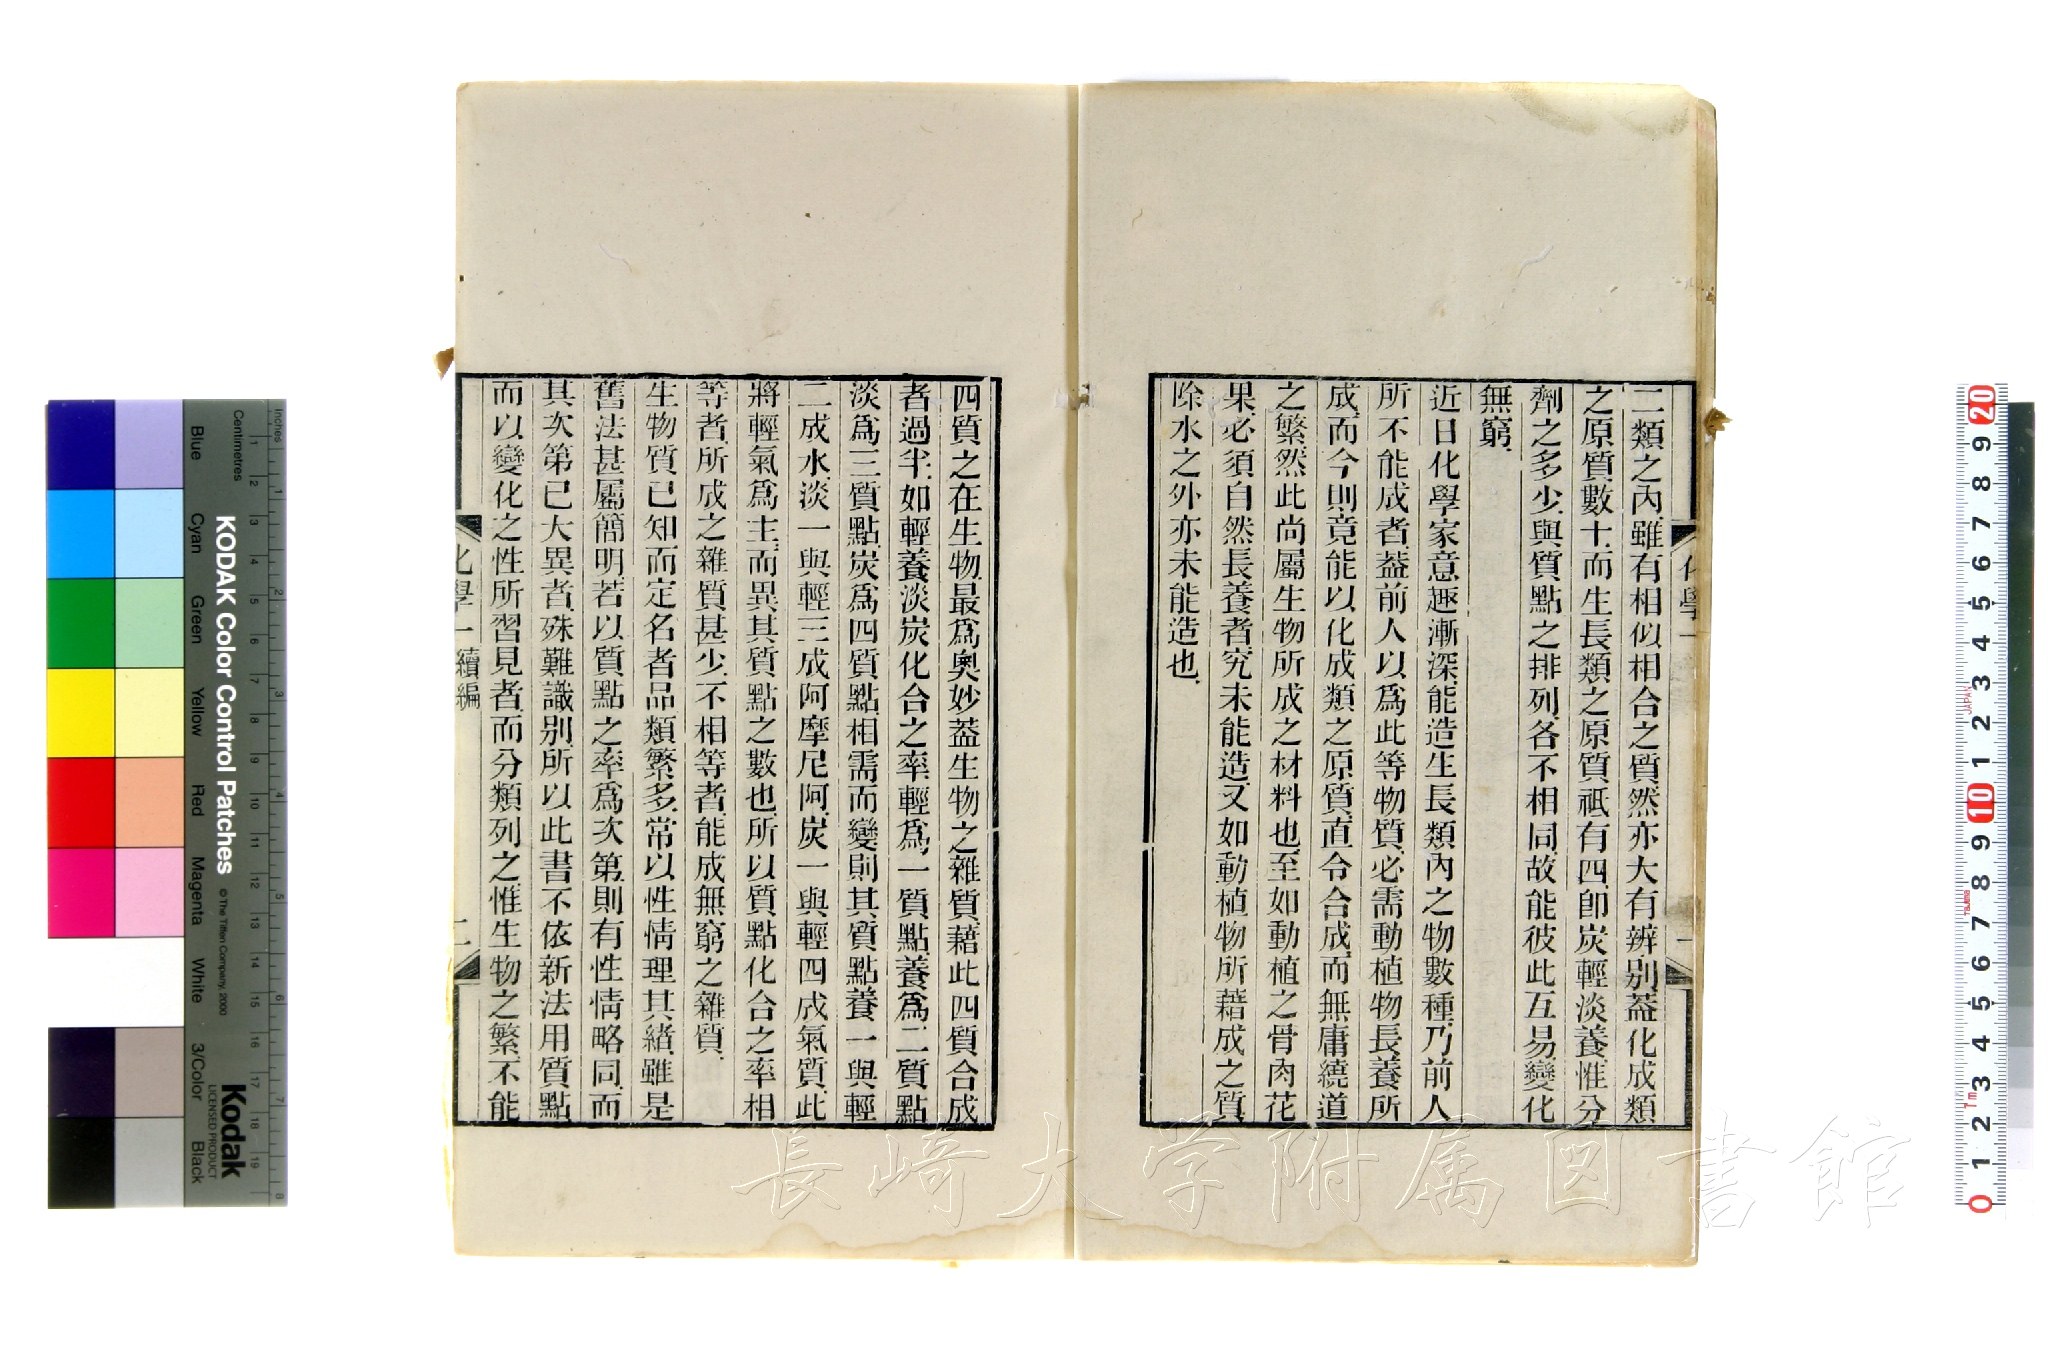 二類之內雖有相似相合之質然亦大有辨別蓋化成類
之原質數十而生長類之原質祇有四卽炭輕淡養惟分
劑之多少與質點之排列各不相同故能彼此互易變化
無窮
近日化學家意趣漸深能造生長類內之物數種乃前人
所不能成者蓋前人以爲此等物質必需動植物長養所
成而今則竟能以化成類之原質直令合成而無庸繞道
之繁然此尚屬生物所成之材料也至如動植之骨肉花
果必須自然長養者究未能造又如動植物所藉成之質
除水之外亦未能造也
化學一
一
四質之在生物最爲奧妙蓋生物之雜質藉此四質合成
者過半如輕養淡炭化合之率輕爲一質點養爲二質點
淡爲三質點炭爲四質點相需而變則其質點養一與輕
二成水淡一與輕三成阿摩尼阿炭一與輕四成氣質此
將輕氣爲主而異其質點之數也所以質點化合之率相
等者所成之雜質甚少不相等者能成無窮之雜質
生物質已知而定名者品類繁多常以性情理其緒雖是
舊法甚屬簡明若以質點之率爲次第則有性情略同而
其次第已大異者殊難識別所以此書不依新法用質點
而以變化之性所習見者而分類列之惟生物之繁不能
化學一 續編
二
長崎大学附属図書館
KODAK Color Control Patches
© The Tiffen Company, 2000
Kodak
LICENSED PRODUCT
Inches
Centimetres
Blue
Cyan
Green
Yellow
Red
Magenta
White
3/Color
Black
JAPAN
Tajima